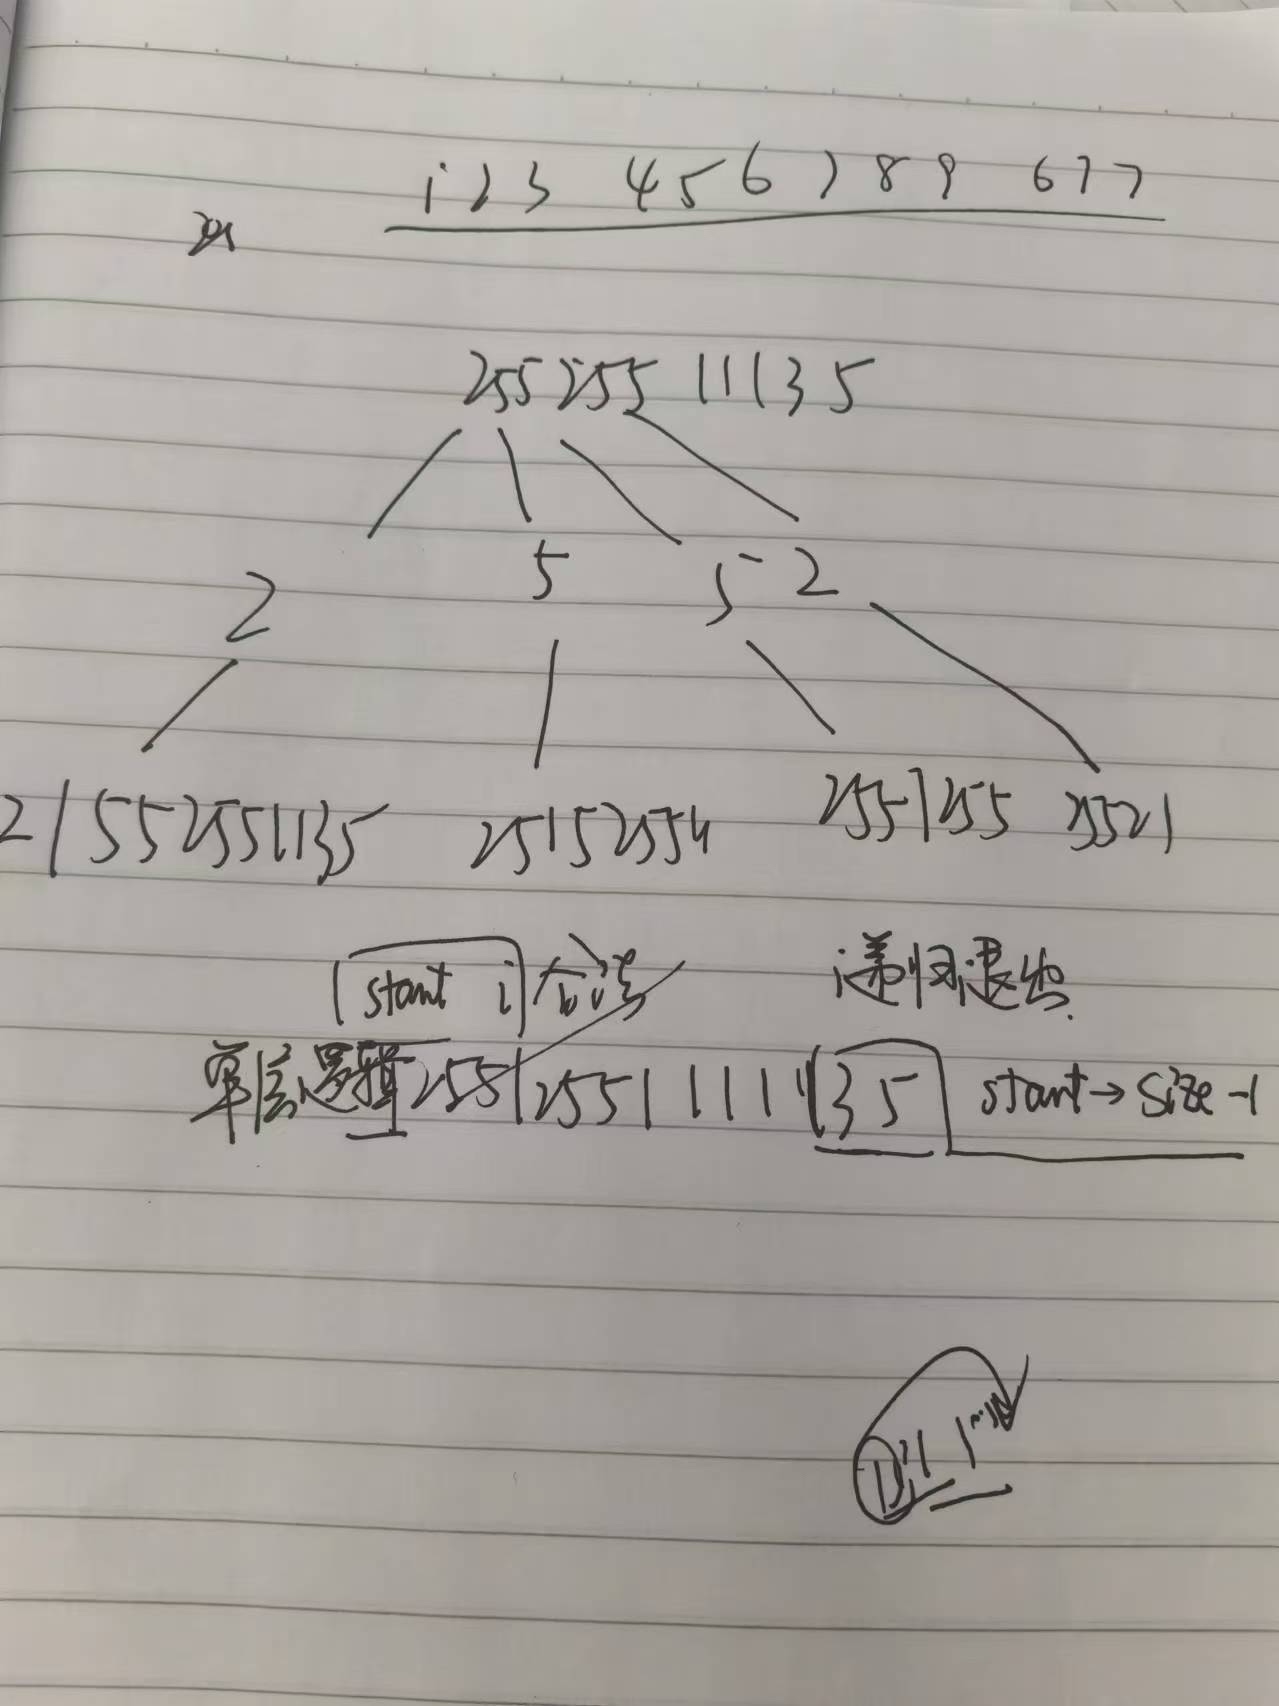 1 2 3 4 5 6 7 8 9 6 7 7
255 255 111 3 5
2 5 5 2
2 | 55 255 11 35 25 | 52554 255 | 255 2552 |
start i 合法 递归退出
单层逻辑 255 | 255 | 1 1 1 1 | 3 5 start → size -1